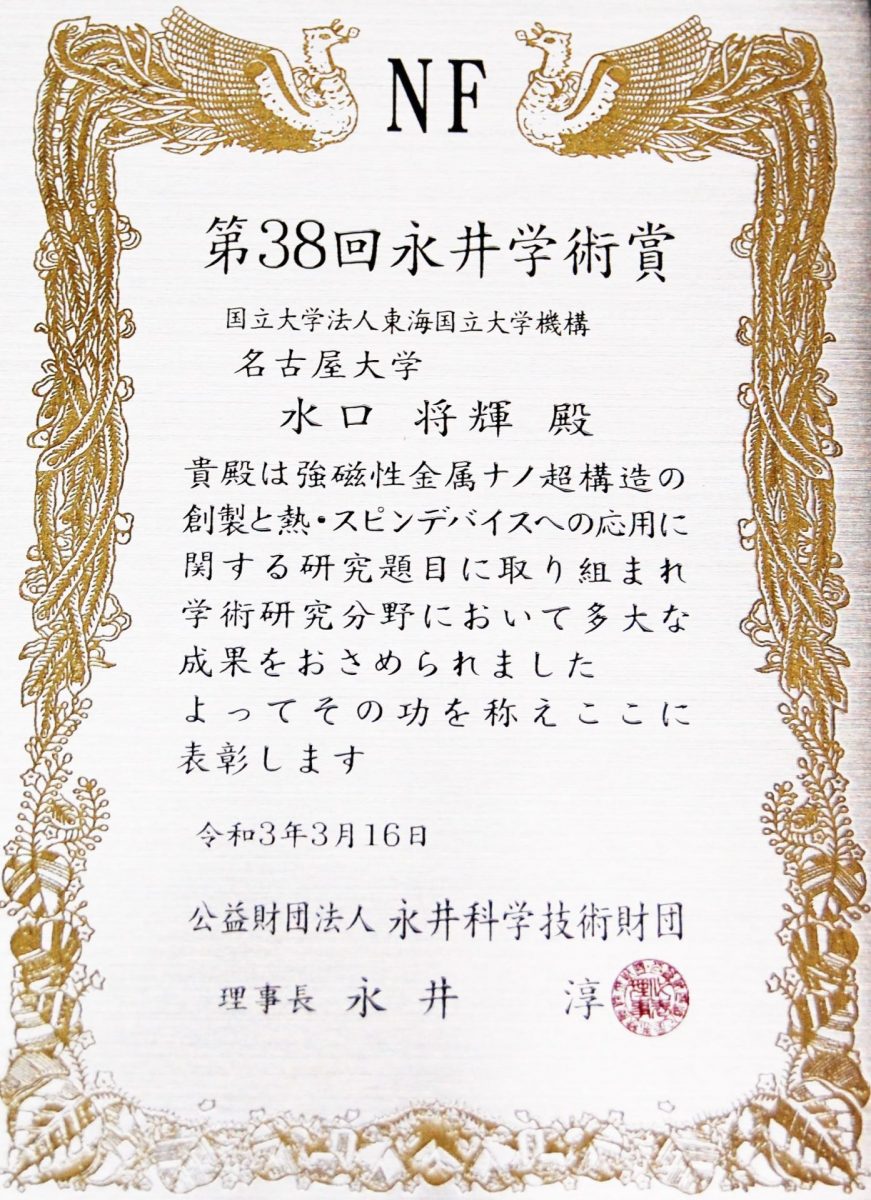 NF
第38回永井学術賞
国立大学法人東海国立大学機構
名古屋大学
水口 将輝 殿
貴殿は強磁性金属ナノ超構造の
創製と熱・スピンデバイスへの応用に
関する研究題目に取り組まれ
学術研究分野において多大な
成果をおさめられました
よってその功を称えここに
表彰します
令和3年3月16日
公益財団法人 永井科学技術財団
理事長 永井 淳